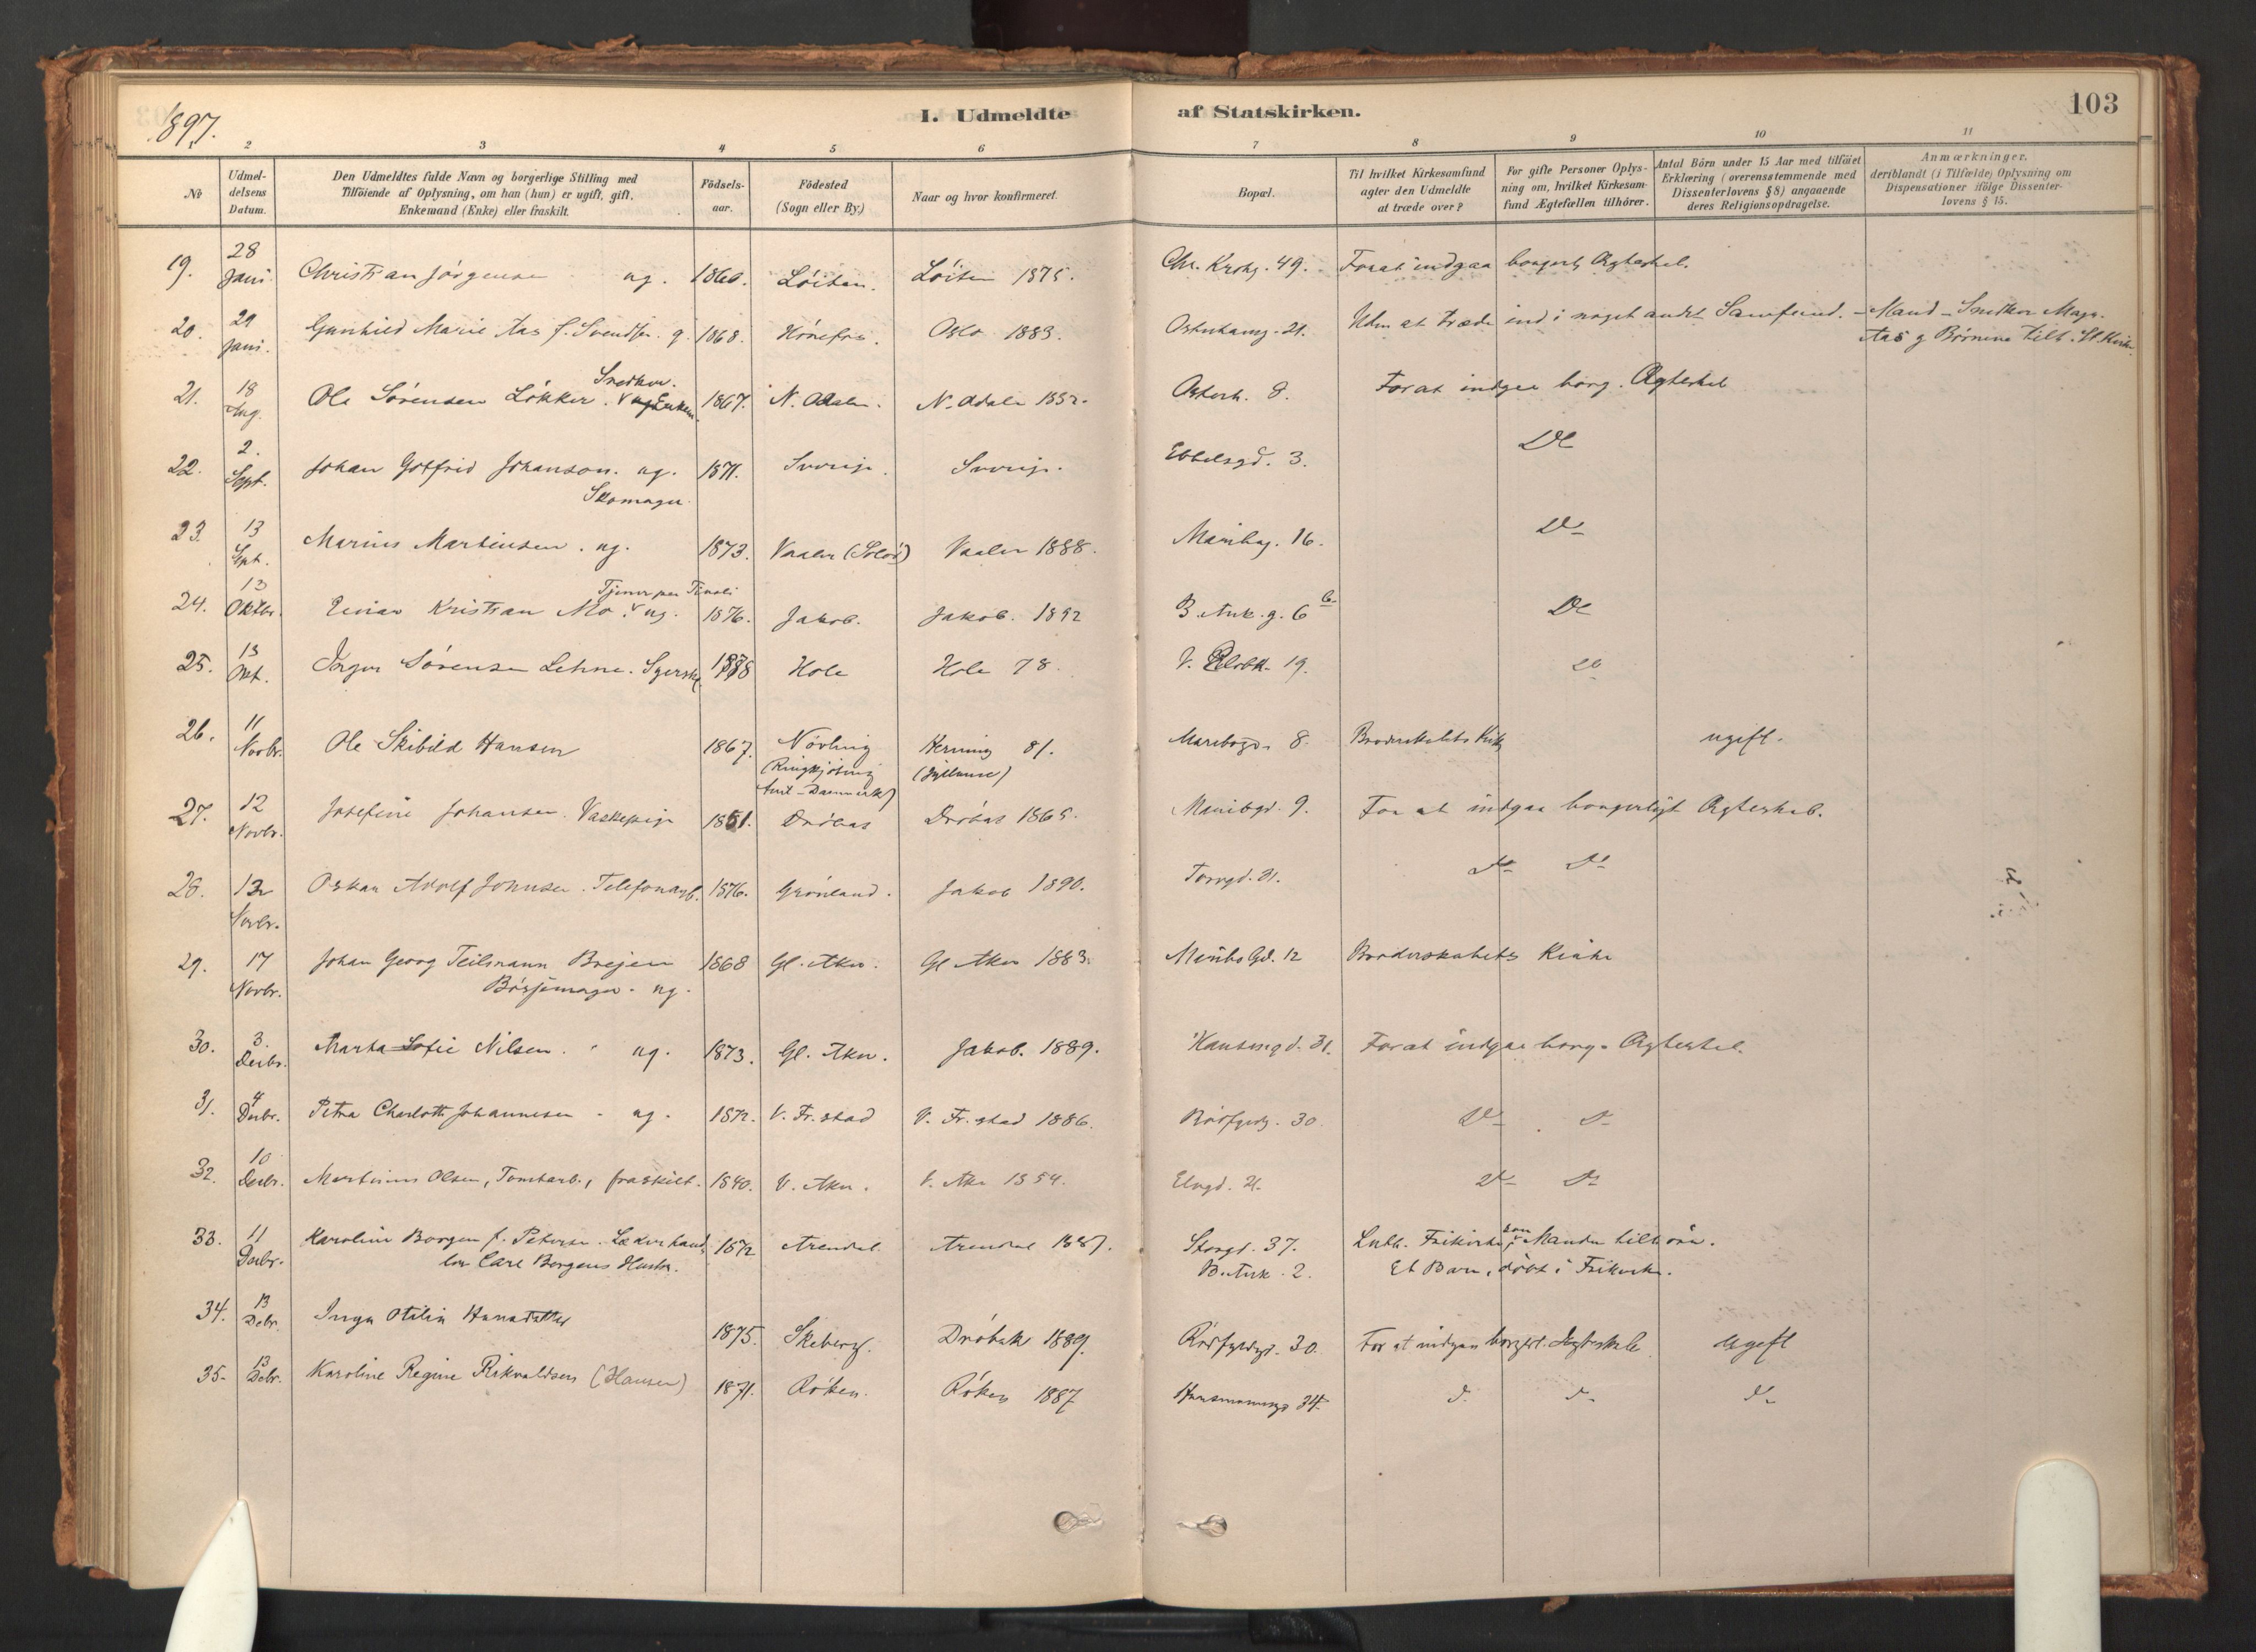 1897.
I. Udmeldte af Statskirken.
103
2 3 4 5 6 7 8 9 10 11
No
Udmel-
delsens
Datum.
Den Udmeldtes fulde Navn og borgerlige Stilling med
Tilföiende af Oplysning, om han (hun) er ugift, gift,
Enkemand (Enke) eller fraskilt.
Födsels-
aar.
Födested
(Sogn eller By.)
Naar og hvor konfirmeret.
Bopæl.
Til hvilket Kirkesamfund
agter den Udmeldte
at træde over?
For gifte Personer Oplys-
ning om, hvilket Kirkesam-
fund Ægtefællen tilhörer.
Antal Börn under 15 Aar med tilföiet
Erklæring (overensstemmende med
Dissenterlovens § 8) angaaende
deres Religionsopdragelse.
Anmærkninger,
deriblandt (i Tilfælde) Oplysning om
Dispensationer ifölge Dissenter-
lovens § 15.
19. 28 Juni. Christian Jörgensen ug. 1860. Löiten. Löiten 1875. Chr. Krohg. 49. For at indgaa borgerl. Ægteskab.
20. 29 Juni. Gunhild Marie Aas f. Svendsen. g. 1868. Hönefos. Oslo 1883. Osterhausg. 21. Uden at træde ind i noget andet Samfund. - Mand - Snedker Magn.
Aas g Börnene tilh. St. Kirke.
Snedker.
21. 18 Aug. Ole Sörensen Lökker. Enkem. 1867. N. Odalen. N. Odalen 1882. Osterh. 8. For at indgaa borg. Ægteskab
22. 2. Sept. Johan Gotfrid Johanson. ug. 1871. Sverige. Sverige. Ebbelsgd. 3. Do
Skomager.
23. 13 Sept. Marius Martinsen. ug. 1873. Vaaler (Solör) Vaaler 1888. Maribog. 16. Do
Tjener paa Tivoli
24. 13 Oktbr. Einar Kristian Mo. ug. 1876. Jakob. Jakob. 1892 B. Ank. g. 6 b. Do
25. 13 Okt. Inger Sörensen Lehne. Syersk Hole Hole 78. V. Elvbk. 19. do
26. 11 Novbr. Ole Skibild Hansen 1867. Növling Herning 81. Maribogd. 8. Broderskabets Kirke ugift.
(Ringkjöbing (Jylland)
Amt - Danmark)
27. 12 Novbr. Josefine Johansen. Vaskepige 1851. Dröbak Dröbak 1865. Maribogd. 9. For at indgaa borgerligt Ægteskab.
28. 12 Novbr. Oskar Adolf Johnsen. Telefonarb. 1876. Grönland. Jakob 1890. Torvgd. 21. Do Do
29. 17 Novbr. Johan Georg Teilmann Brejen 1868 Gl. Aker. Gl Aker 1883. Maribo Gd. 12 Broderskabets Kirke
Bössemager. ug.
30. 3. Decbr. Marta Sofie Nilsen. ug. 1873. Gl. Aker. Jakob. 1889. Hausmgd. 31. For at indgaa borg. Ægteskab.
31. 4 Decbr. Petra Charlotte Johannesen - ug. 1872. V. Fr. stad V. Fr. stad 1886. Rödfyldg. 30. Do Do
32. 10 Decbr. Martinus Olsen, Tomtearb., fraskilt. 1840. V. Aker. V. Aker 1854. Elvegd. 21. Do Do
33. 11 Decbr. Karoline Borgen f. Petersen. Lækerhand 1872 Arendal Arendal 1887. Storgd. 37. Luth. Frikirke, som Manden tilhörer.
ler Carl Borgens Hustru. B. Ank. 2. Et Barn, döbt i Frikirke.
34. 13 Debr. Inga Otilia Hansdatter 1875. Skeberg. Dröbak 1889. Rödfyldgd. 30. For at indgaa borgerl. Ægteskab Ugift
35. 13 Debr. Karoline Regine Rikvaldsen (Hansen) 1871. Röken. Röken 1887 Hausmannsgd 34. d. d. d.